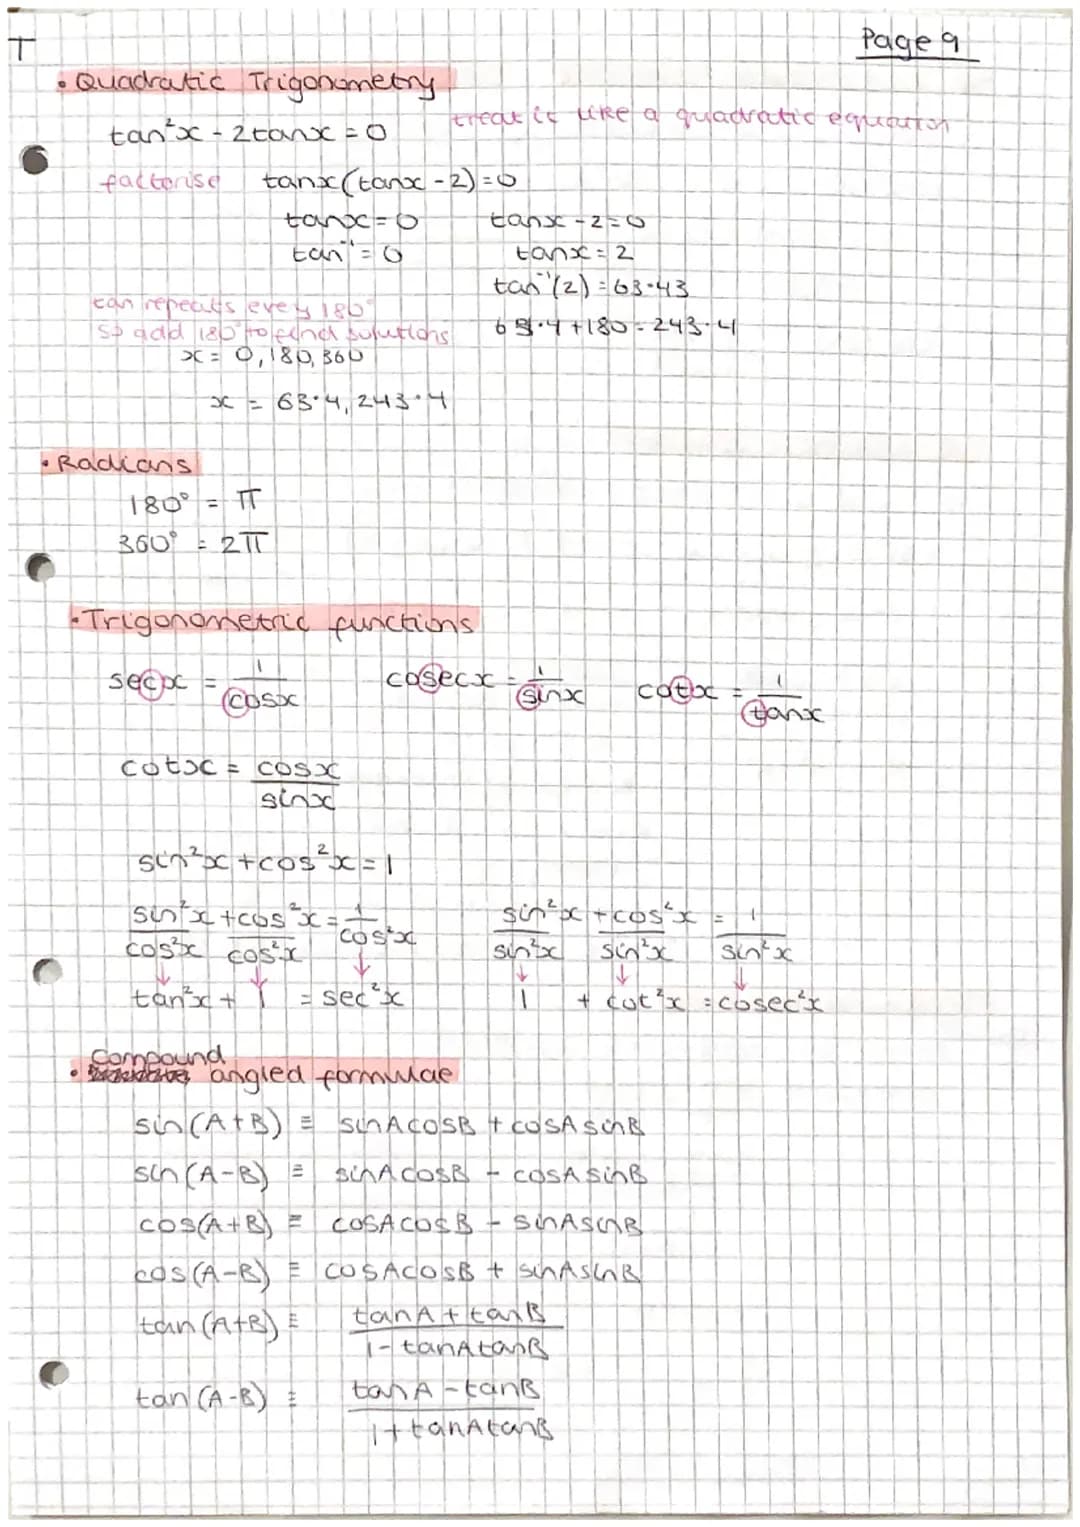 T
Page 9
• Quadratic Trigonometry
tan²x - 2tanx = 0
treat it like a quadratic equation
factorise tanx(tanx - 2) = 0
tanx = 0 tanx - 2 = 0
tan⁻¹ = 0 tanx = 2
tan⁻¹(2) = 63.43
tan repeats every 180°
so add 180° to find solutions 63.4 + 180 = 243.4
x = 0, 180, 360
x = 63.4, 243.4
• Radians
180° = π
360° = 2π
• Trigonometric functions
secx = 1/cosx cosecx = 1/sinx cotx = 1/tanx
cotx = cosx/sinx
sin²x + cos²x = 1
sin²x/cos²x + cos²x/cos²x = 1/cos²x sin²x/sin²x + cos²x/sin²x = 1/sin²x
↓ ↓ ↓ ↓ ↓ ↓
tan²x + 1 = sec²x 1 + cot²x = cosec²x
Compound
• angled formulae
sin(A+B) ≡ sinAcosB + cosAsinB
sin(A-B) ≡ sinAcosB - cosAsinB
cos(A+B) ≡ cosAcosB - sinAsinB
cos(A-B) ≡ cosAcosB + sinAsinB
tan(A+B) ≡ tanA + tanB / 1 - tanAtanB
tan(A-B) ≡ tanA - tanB / 1 + tanAtanB